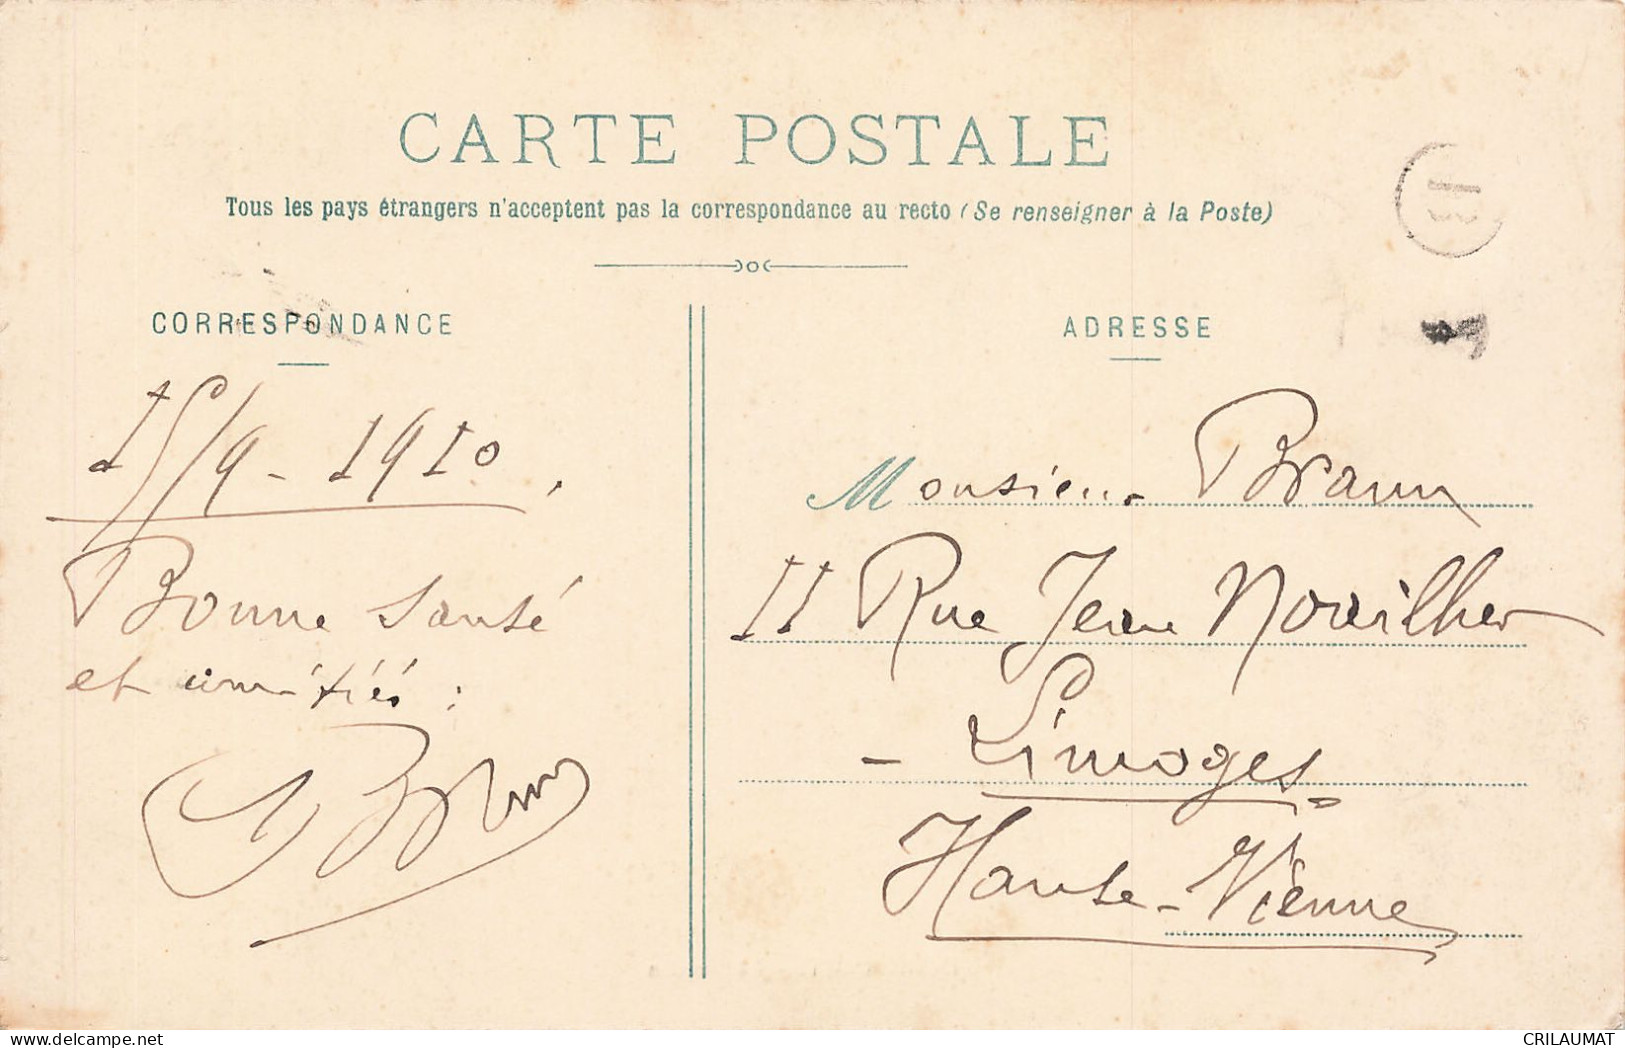 CARTE POSTALE
Tous les pays étrangers n'acceptent pas la correspondance au recto (Se renseigner à la Poste)
CORRESPONDANCE
15/9-1910.
Bonne santé
et amitiés :
ADRESSE
Monsieur Braun
11 Rue Jean Novilher
- Limoges
Haute-Vienne
delcampe.net
CRILAUMAT